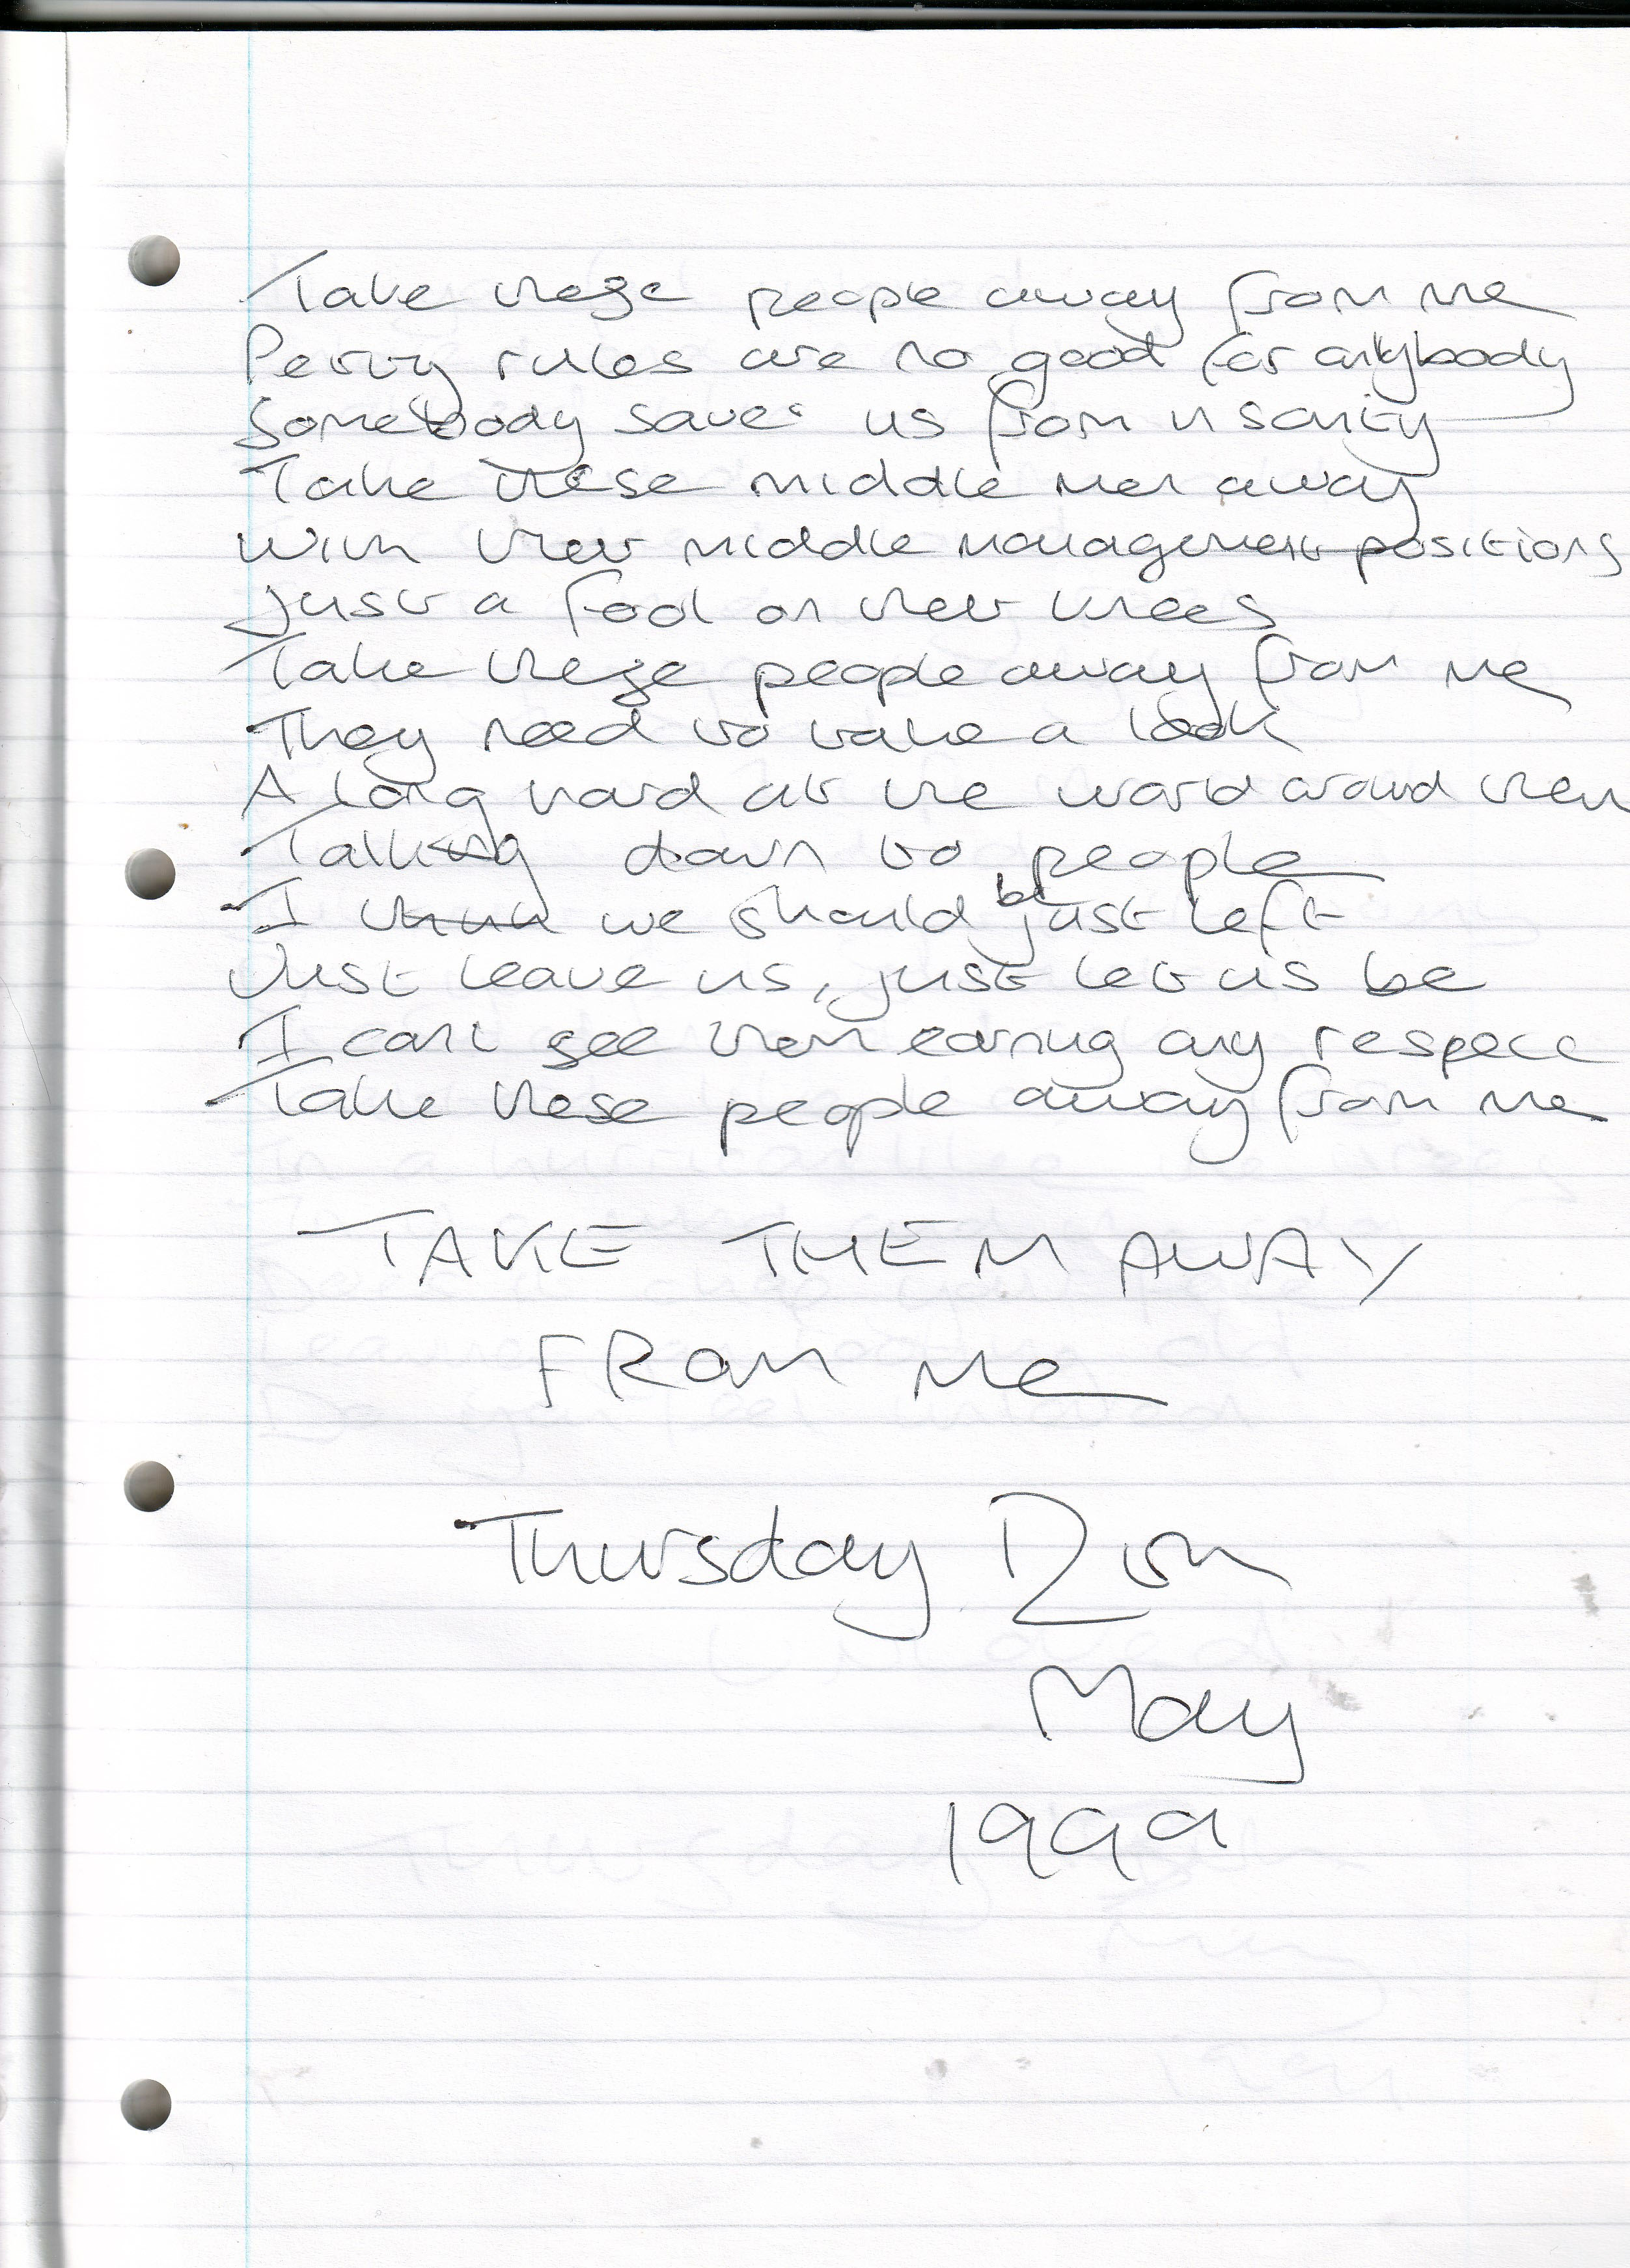 Take these people away from me
Petty rules are no good for anybody
Somebody save us from insanity
Take these middle men away
With their middle management positions
Just a fool on their knees
Take these people away from me
They need to take a look
A long hard at the world around them
Talking down to people
I think we should be just left
Just leave us, just let us be
I can't see them earning any respect
Take these people away from me
TAKE THEM AWAY
FROM ME
Thursday
May
1999